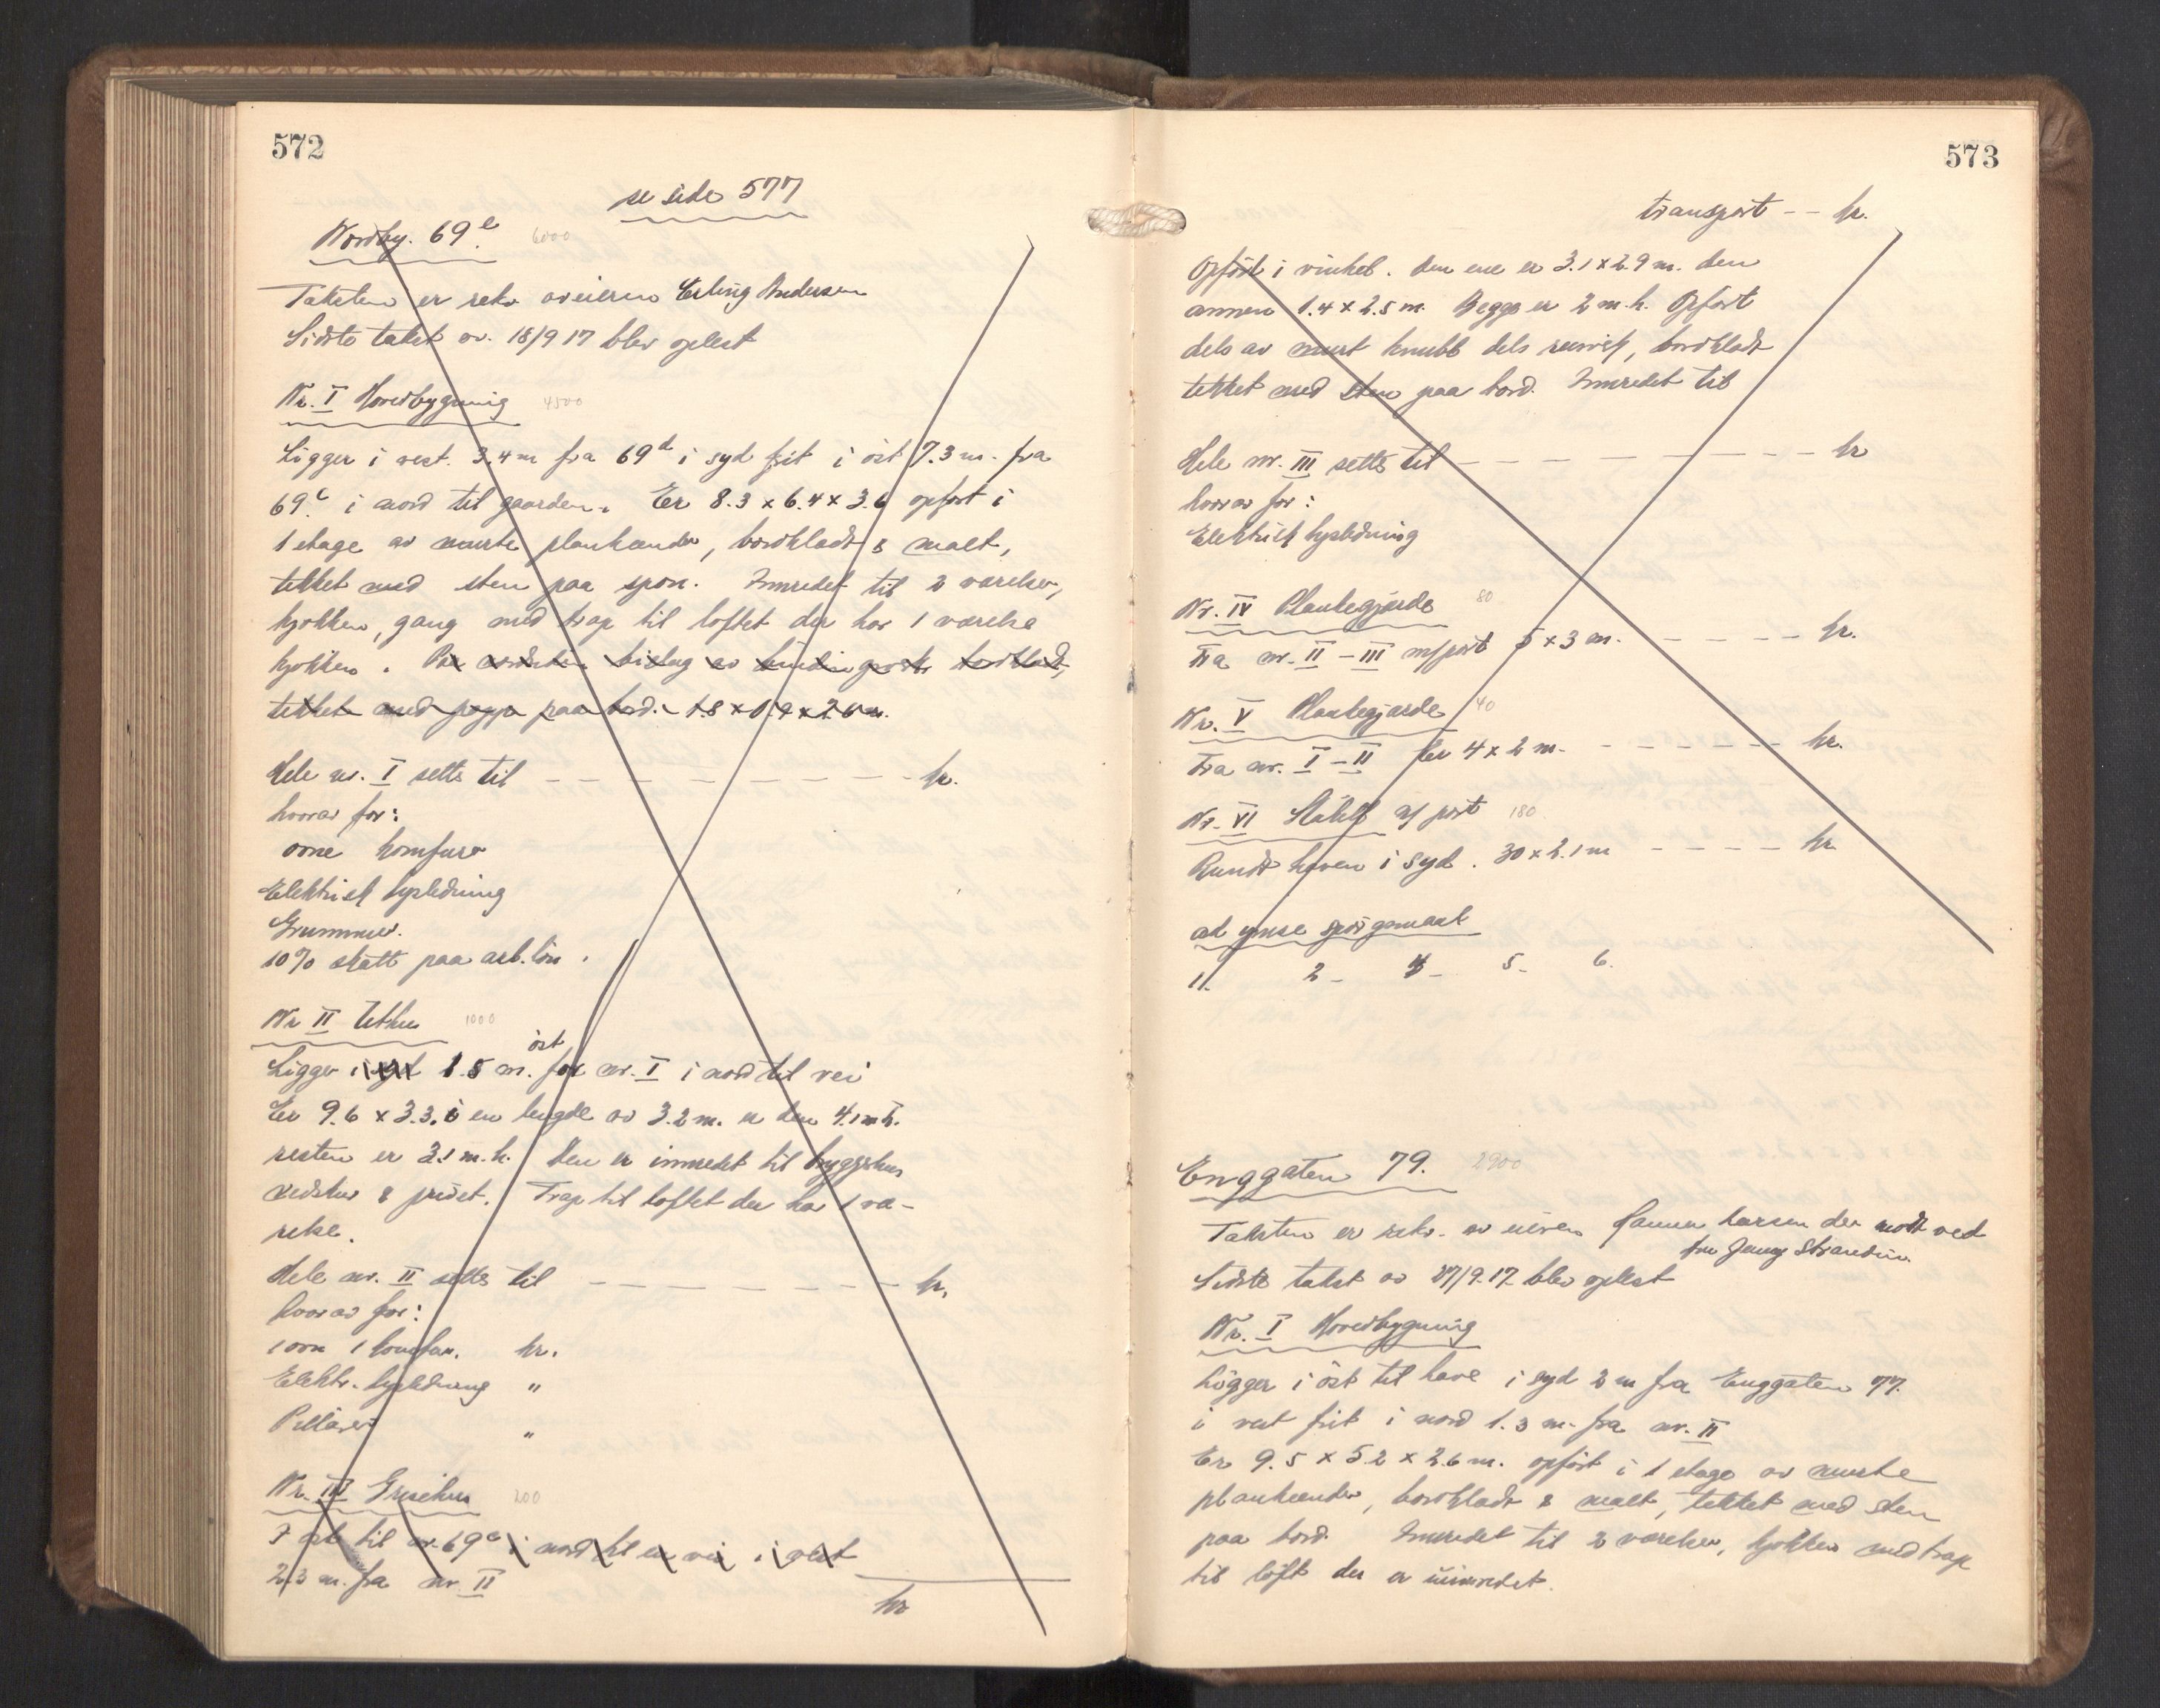 572
se side 577
Nordby. 69 e. 6000
Taksten er rekv av eieren Erling Andersen
Sidste takst av. 18/9 17 blev oplest
Nr. I Hovedbygning 4500
Ligger i vest. 3.4 m fra 69 d i syd frit i öst 7.3 m. fra
69 c. i nord til gaarden. Er 8.3 x 6.4 x 3.6 opfört i
1 etage av murte plankeender, bordklædt & malt,
tekket med sten paa spon. Innredet til 2 værelser,
kjökken, gang med trap til loftet der har 1 værelse
kjökken. Paa nordsiden bislag av bindingsverk bordklædt,
tekket med papp paa bord. 1.8 x 0.9 x 2.6 m.
Hele nr. I settes til kr.
hvorav for:
ovne komfurer
Elektrisk lysledning
Grunnmur.
10% skatt paa arb.lön.
Nr II Uthus 1000
öst
Ligger i 1.5 m. for nr. I i nord til vei
Er 9.6 x 3.3. i en lengde av 3.2 m. er den 4.1 m h.
resten er 3.1 m.h. Den er innredet til bryggehus
vedskur & privet. Trap til loftet der har 1 væ-
relse.
Hele nr. II settes til kr.
hvorav for:
1 ovn 1 komfur. kr.
Elektr. lysledning "
Pillarer "
Nr. III Grisehus 200
I öst til nr. 69 c i nord til en vei i vest
2.3 m. fra nr. II
kr
573
transport -- kr.
Opfört i vinkel. den ene er 3.1 x 2.9 m. den
annen 1.4 x 2.5 m. Begge er 2 m.h. Opfört
dels av murt knubb dels reisverk, bordklædt
tekket med sten paa bord. Innredet til
Hele nr. III settes til kr
hvorav for:
Elektrisk lysledning
Nr. IV Plankegjærde 80
Fra nr. II - III m/port 5 x 3 m. kr.
Nr. V Plankegjærde 40
Fra nr. I - II er 4 x 2 m. kr.
Nr. VI Stakit m/port 180
Rundt haven i syd. 30 x 2.1 m kr
ad ymse spörgsmaal
1. 2 - 4 - 5 - 6.
Enggaten 79. 2900
Taksten er rekv. av eieren Larsen der mött ved
fru Jenny Strandin.
Sidste takst av 27/9.17 blev oplest
Nr. I Hovedbygning
Ligger i öst til have i syd 2 m fra Enggaten 77.
i vest frit i nord 1.3 m. fra nr. II
Er 9.5 x 5.2 x 2.6 m. opfört i 1 etage av murte
plankeender, bordklædt & malt, tekket med sten
paa bord. Innredet til 2 værelser, kjökken med trap
til loft der er uinnredet.